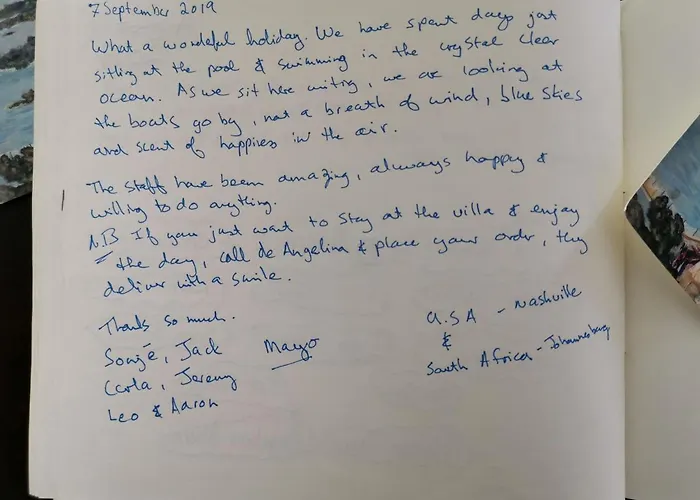 7 September 2019
What a wondeful holiday. We have spent days just
sitting at the pool & swimming in the crystal clear
ocean. As we sit here writing, we are looking at
the boats go by, not a breath of wind, blue skies
and scent of happiness in the air.
The staff have been amazing, always happy &
willing to do anything.
NB If you just want to stay at the villa & enjoy
the day, call de Angelina & place your order, they
deliver with a smile.
Thanks so much.
Jack Mayo
Carla, Jeremy
Leo & Aaron
U.S.A - Nashville
&
South Africa - Johannesburg